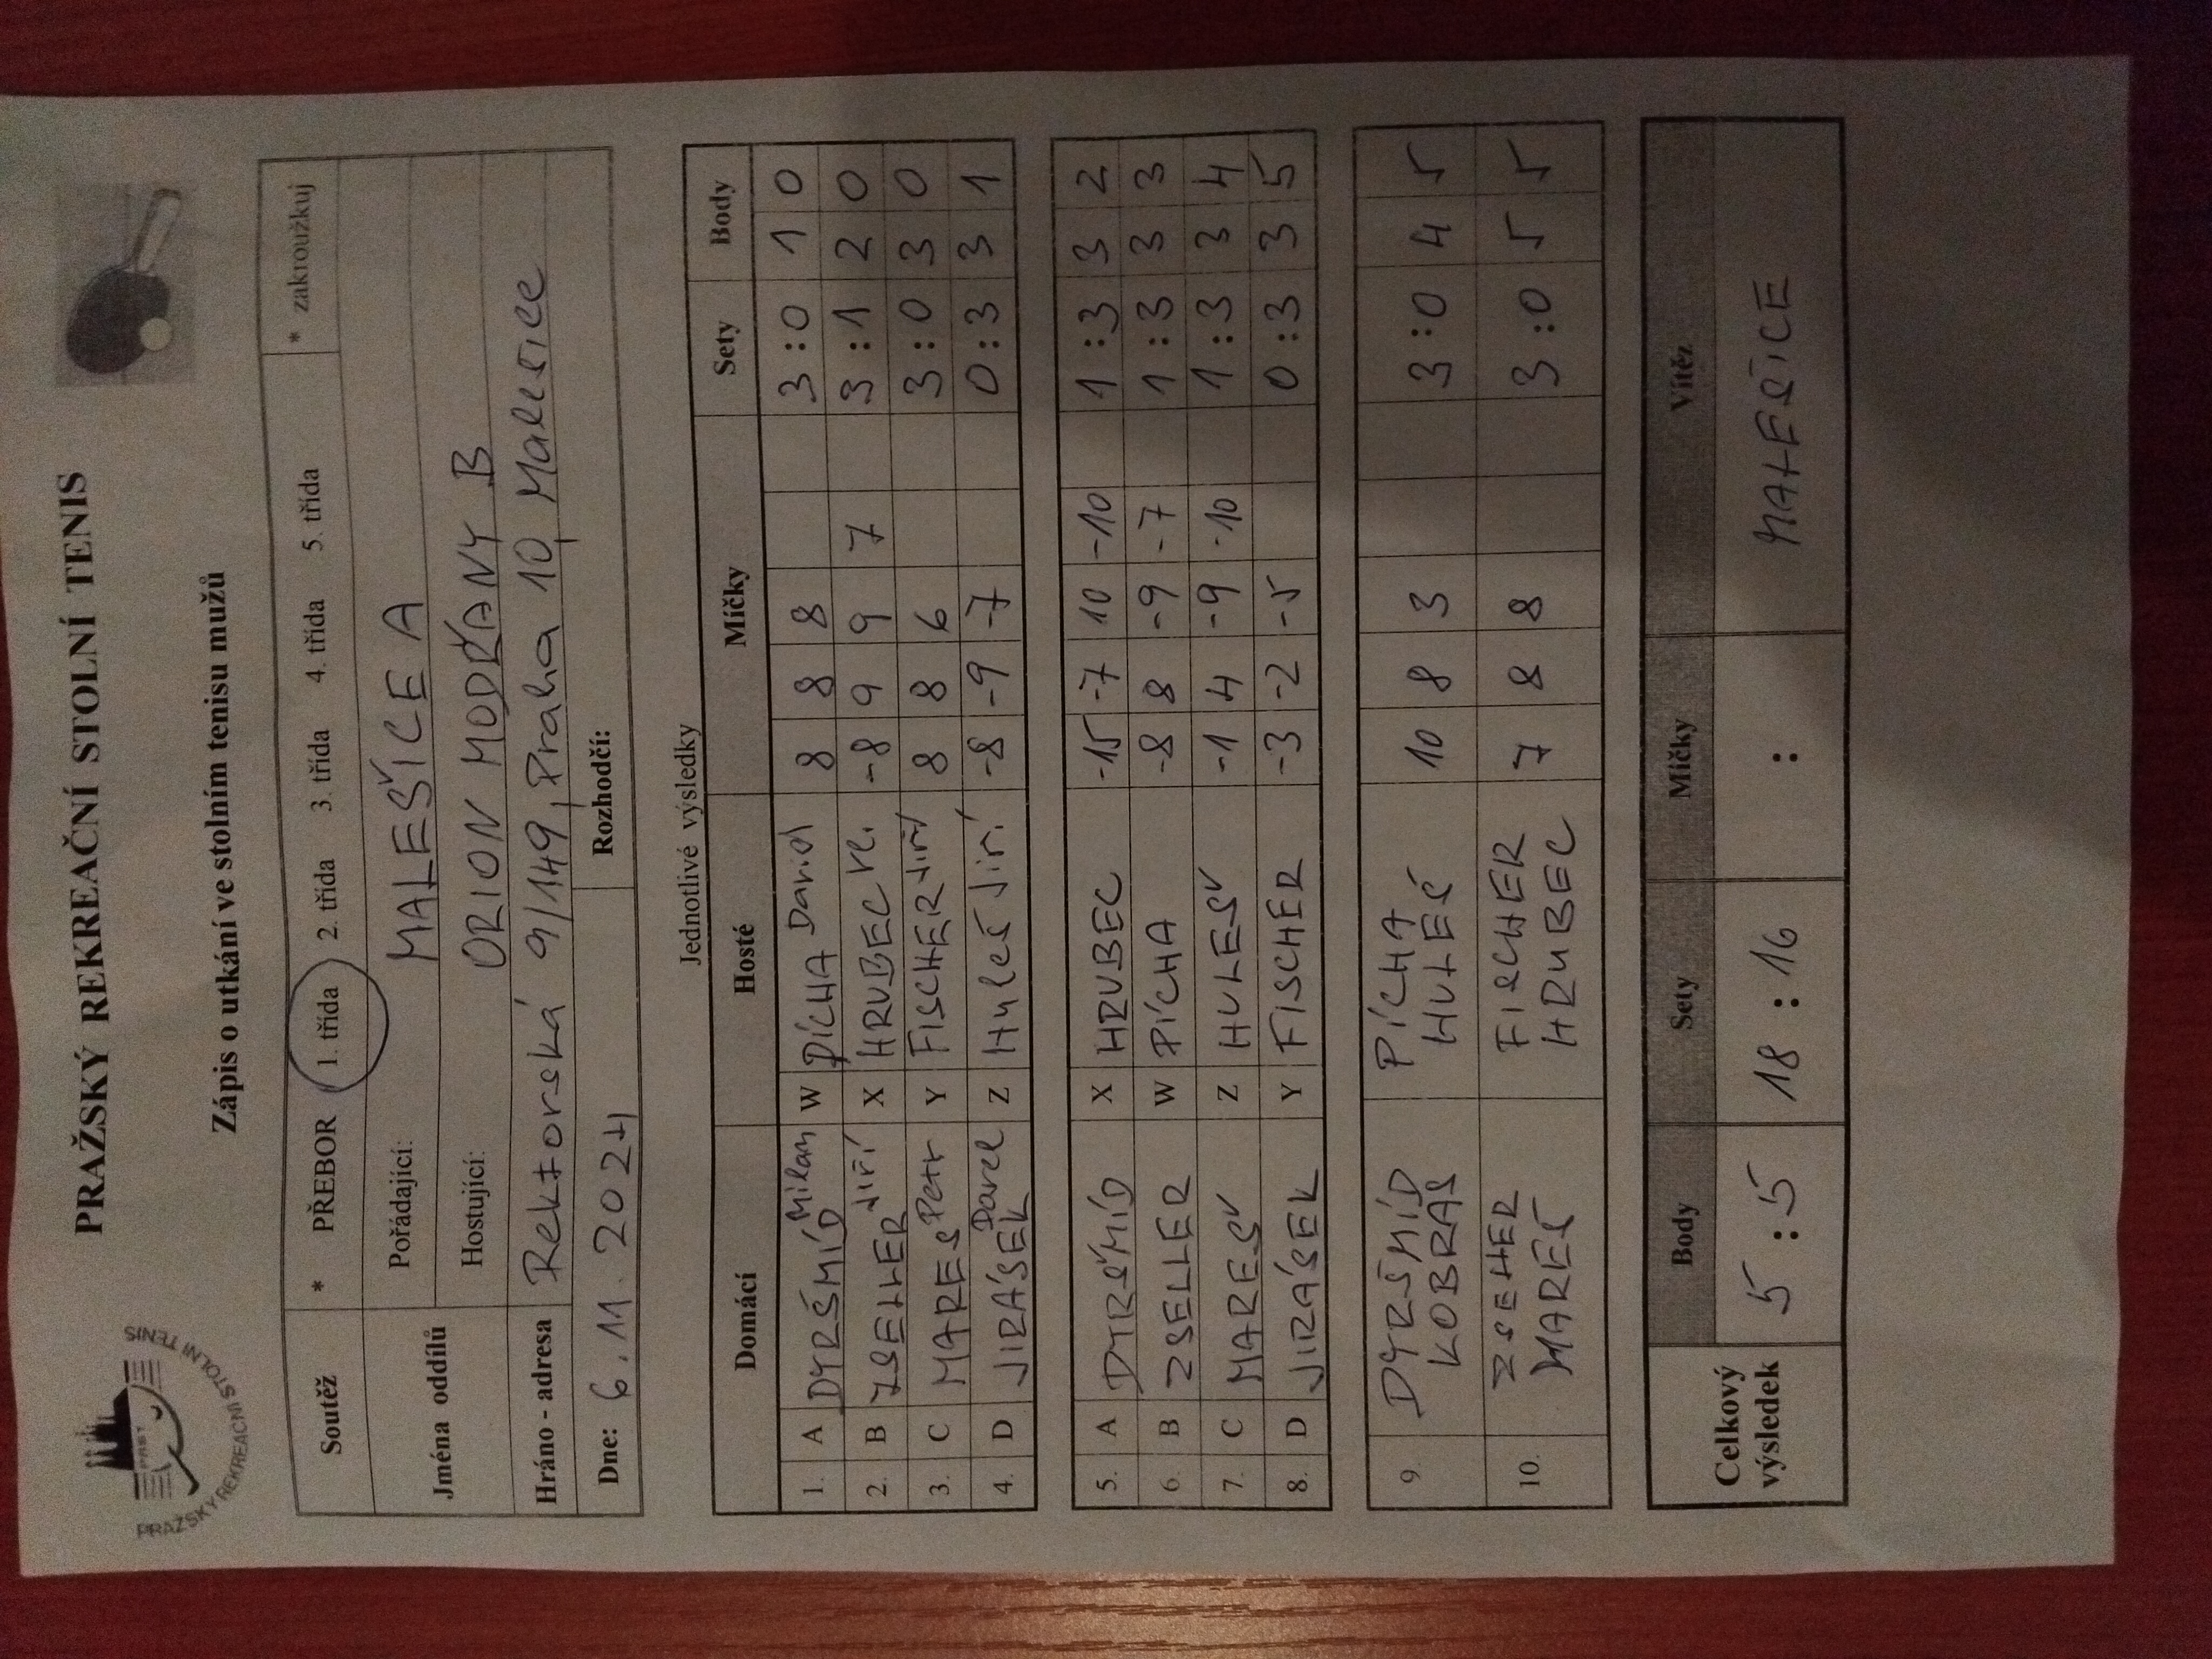 PRAŽSKÝ REKREAČNÍ STOLNÍ TENIS
PRAŽSKÝ REKREAČNÍ STOLNÍ TENIS
Zápis o utkání ve stolním tenisu mužů
Soutěž * PŘEBOR 1. třída 2. třída 3. třída 4. třída 5. třída * zakroužkuj
Jména oddílů Pořádající: MALEŠICE A
Hostující: ORION MODŘANY B
Hráno - adresa Rektorská 9/149, Praha 10, Malešice
Dne: 6.11.2024 Rozhodčí:
Jednotlivé výsledky
Domácí Hosté Míčky Sety Body
1. A DYRŠMÍD Milan W PÍCHA Daniel 8 8 8 3:0 1 0
2. B ZSELLER Jiří X HRUBEC -8 9 9 7 3:1 2 0
3. C MAREŠ Petr Y FISCHER Jiří 8 8 6 3:0 3 0
4. D JIRÁSEK Pavel Z Huleš Jiří -8 -9 -7 0:3 3 1
5. A DYRŠMÍD X HRUBEC -15 -7 10 -10 1:3 3 2
6. B ZSELLER W PÍCHA -8 8 -9 -7 1:3 3 3
7. C MAREŠ Z HULEŠ -1 4 -9 -10 1:3 3 4
8. D JIRÁSEK Y FISCHER -3 -2 -5 0:3 3 5
9. DYRŠMÍD KOBRAS PÍCHA HULEŠ 10 8 3 3:0 4 5
10. ZSELLER MAREŠ FISCHER HRUBEC 7 8 8 3:0 5 5
Body Sety Míčky Vítěz
Celkový výsledek 5:5 18:16 : MALEŠICE